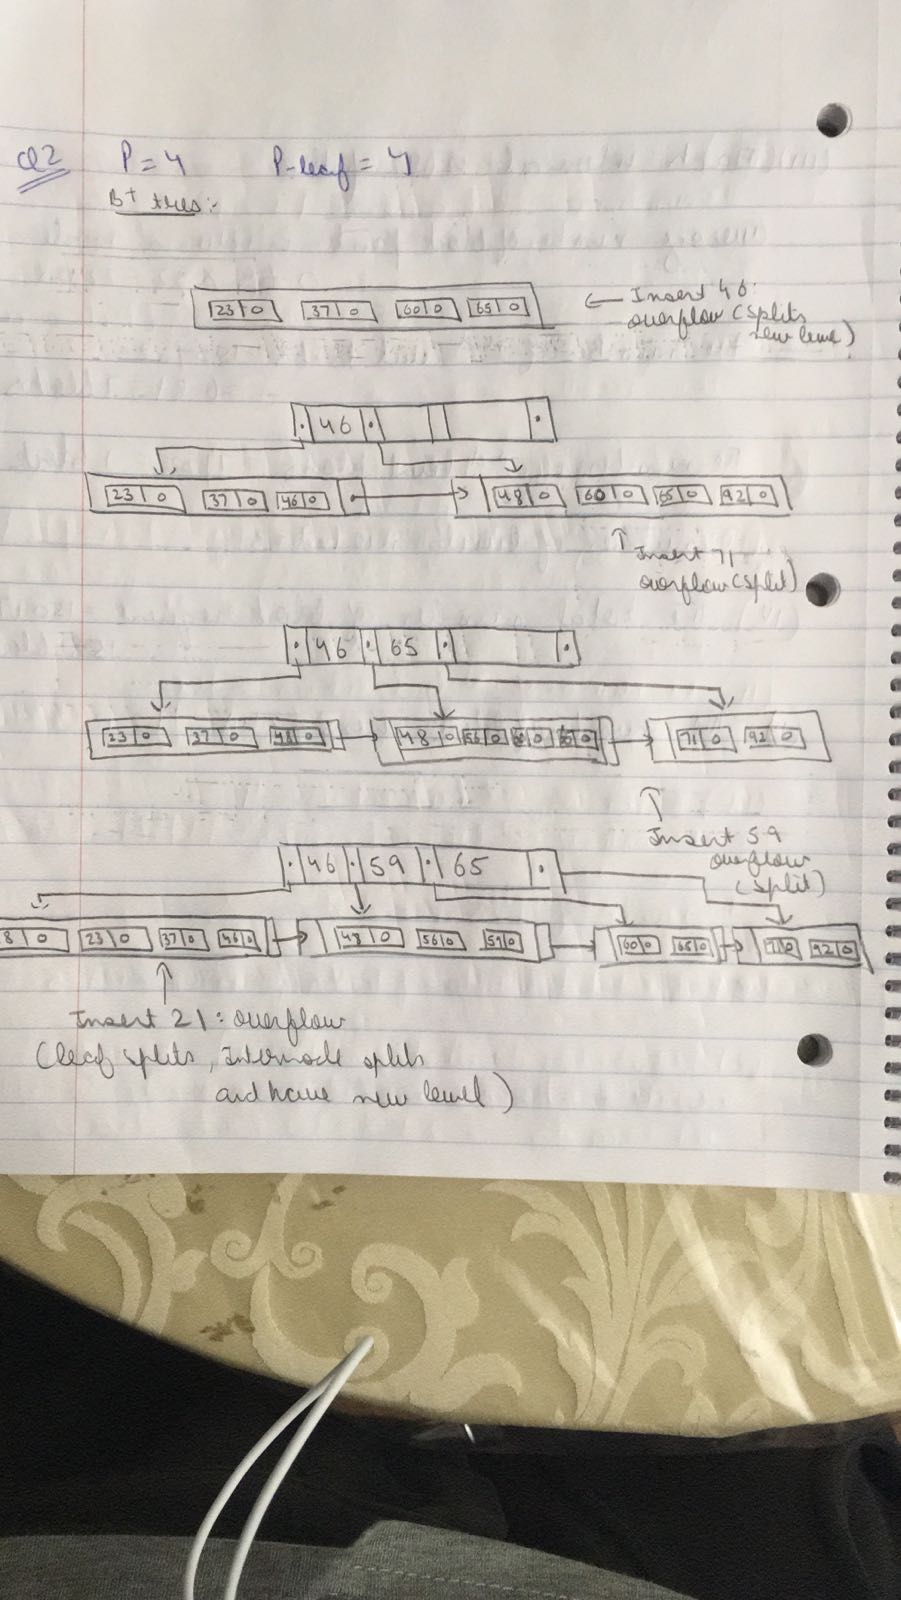 Q2 P=4 P-leaf = 4
B+ tres:-
23 0 37 0 60 0 65 0
Insert 46:
overflow (splits
new level)
46
23 0 37 0 46 0 48 0 60 0 65 0 92 0
Insert 71
overflow (split)
46 65
23 0 37 0 0 48 0 0 0 0 71 0 92 0
Insert 59
overflow
(split)
46 59 65
8 0 23 0 37 0 46 0 48 0 56 0 59 0 60 0 65 0 71 0 92 0
Insert 21: overflow
(leaf splits, Internode splits
and have new level)